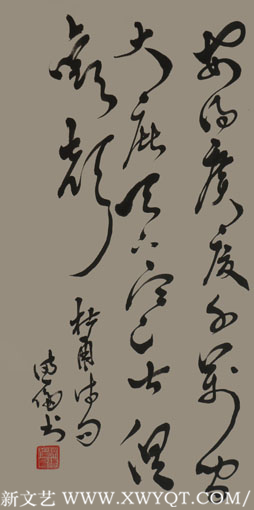 安得廣廈千萬間
大庇天下寒士俱
歡顏
杜甫诗句
书
新文艺 WWW.XWYQT.COM/